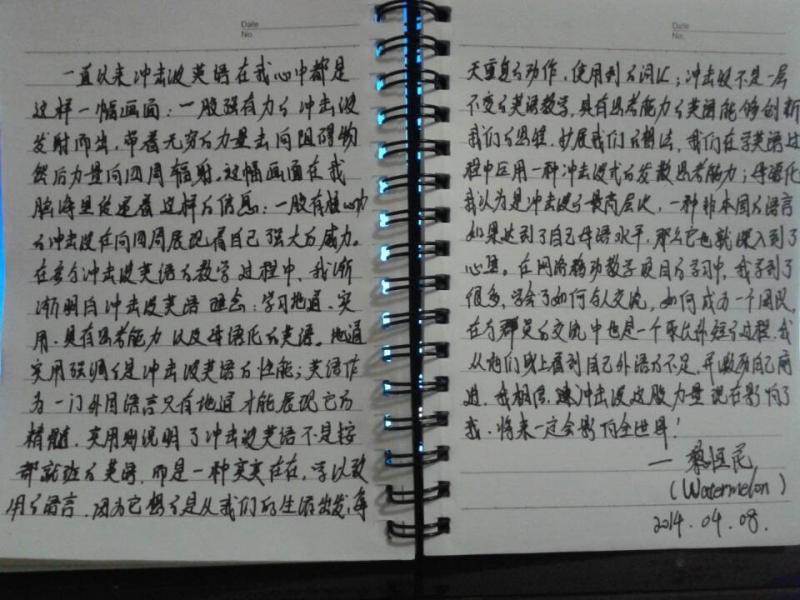 Date
No.
一直以来冲击波英语在我心中都是
这样一幅画面：一股强有力的冲击波
发射而出，带着无穷的力量击向阻碍物
然后力量向四周辐射。这幅画面在我
脑海里传递着这样的信息：一股有核心力
的冲击波在向四周展现着自己强大的威力。
在参与冲击波英语的教学过程中，我渐
渐明白冲击波英语理念：学习地道、实
用、具有思考能力以及母语化的英语。地道
实用强调的是冲击波英语的性能；英语作
为一门外国语言只有地道才能展现它的
精髓，实用则说明了冲击波英语不是按
部就班的英语，而是一种实实在在，学以致
用的语言，因为它想的是从我们的生活出发，每
Date
No.
天重复的动作，使用到的词汇；冲击波不是一层
不变的英语教学，具有思考能力的英语能够创新
我们的思维，扩展我们的想法，我们在学英语过
程中运用一种冲击波式的发散思考能力；母语化
我认为是冲击波的最高层次，一种非本国的语言
如果达到了自己母语水平，那么它也就深入到了
心里。在网络移动教学项目的学习中，我学到了
很多，学会了如何与人交流，如何成为一个团队，
在与群员的交流中也是一个取长补短的过程，我
从他们身上看到自己外语的不足，并激励自己前
进，我相信，冲击波这股力量现在影响了
我，将来一定会影响全世界！
(Watermelon)
2014.04.08.